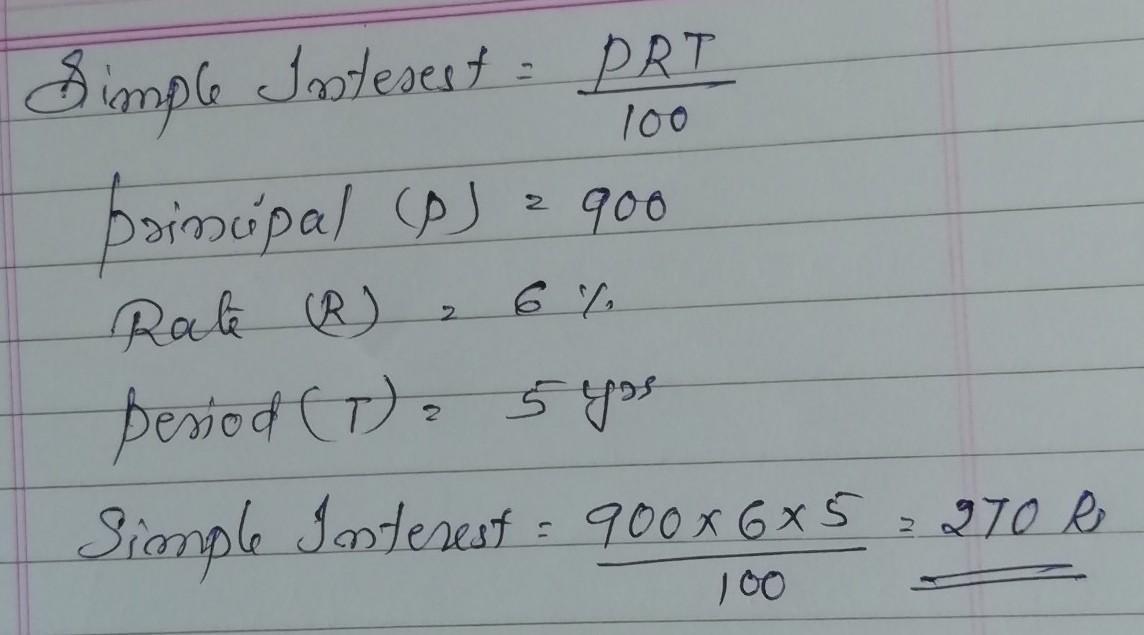 Simple Interest = PRT/100
Principal (P) = 900
Rate (R) = 6 %
Period (T) = 5 yrs
Simple Interest = 900 x 6 x 5/100 = 270 Rs